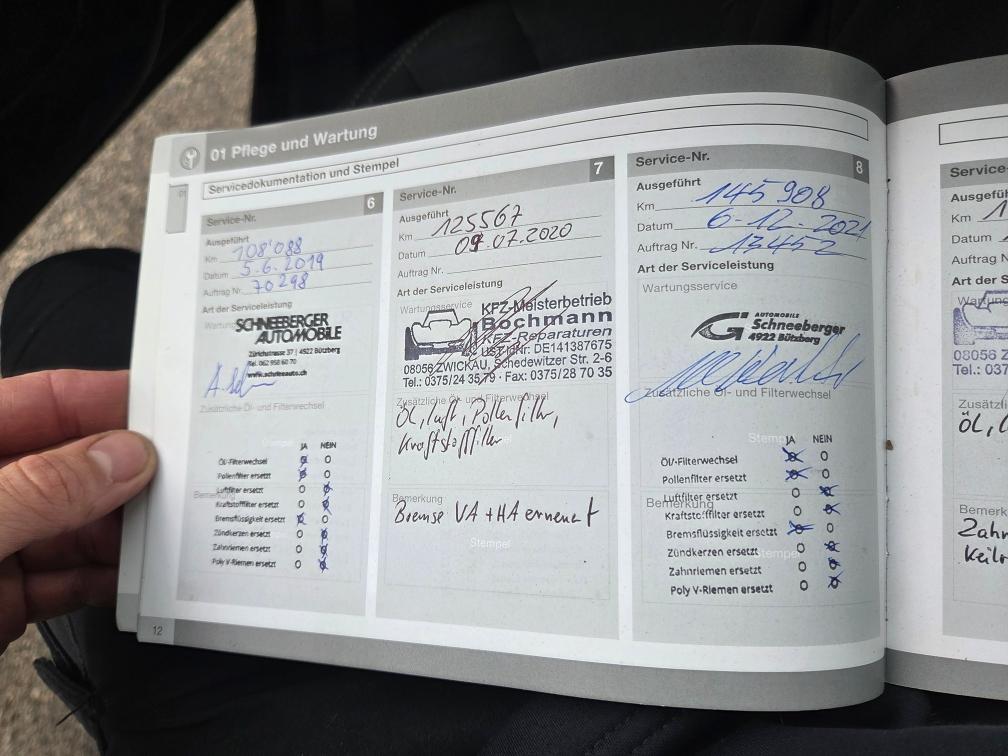 01 Pflege und Wartung
01
Servicedokumentation und Stempel
Service-Nr. 6
Ausgeführt
Km 108'088
Datum 5.6.2019
Auftrag Nr. 70298
Art der Serviceleistung
SCHNEEBERGER
AUTOMOBILE
Zürichstrasse 37 | 4922 Bützberg
Tel. 062 958 60 70
www.schneeauto.ch
Zusätzliche Öl- und Filterwechsel
Stempel
JA NEIN
Öl/-Filterwechsel
Pollenfilter ersetzt
Luftfilter ersetzt
Bemerkung
Kraftstofffilter ersetzt
Bremsflüssigkeit ersetzt
Zündkerzen ersetzt
Zahnriemen ersetzt
Poly V-Riemen ersetzt
12
Service-Nr. 7
Ausgeführt
Km 125567
Datum 09.07.2020
Auftrag Nr.
Art der Serviceleistung
Wartungsservice
KFZ-Meisterbetrieb
Bochmann
KFZ-Reparaturen
UST-IdNr: DE141387675
08056 ZWICKAU, Schedewitzer Str. 2-6
Tel.: 0375/24 35 79 · Fax: 0375/28 70 35
Zusätzliche Öl- und Filterwechsel
Öl, Luft, Pollenfilter,
Kraftstofffilter
Stempel
Bemerkung
Bremse VA + HA erneuert
Stempel
Service-Nr. 8
Ausgeführt
Km 145 908
Datum 6-12-2021
Auftrag Nr. 13452
Art der Serviceleistung
Wartungsservice
AUTOMOBILE
Schneeberger
4922 Bützberg
Zusätzliche Öl- und Filterwechsel
Stempel
JA NEIN
Öl/-Filterwechsel
Pollenfilter ersetzt
Luftfilter ersetzt
Bemerkung
Kraftstofffilter ersetzt
Bremsflüssigkeit ersetzt
Zündkerzen ersetzt
Stempel
Zahnriemen ersetzt
Poly V-Riemen ersetzt
Service-
Ausgefü
Km
Datum
Auftrag N
Art der Se
Wartung
08056 Z
Tel.: 037
Zusätzli
Öl, L
Bemerk
Zahn
Keilr